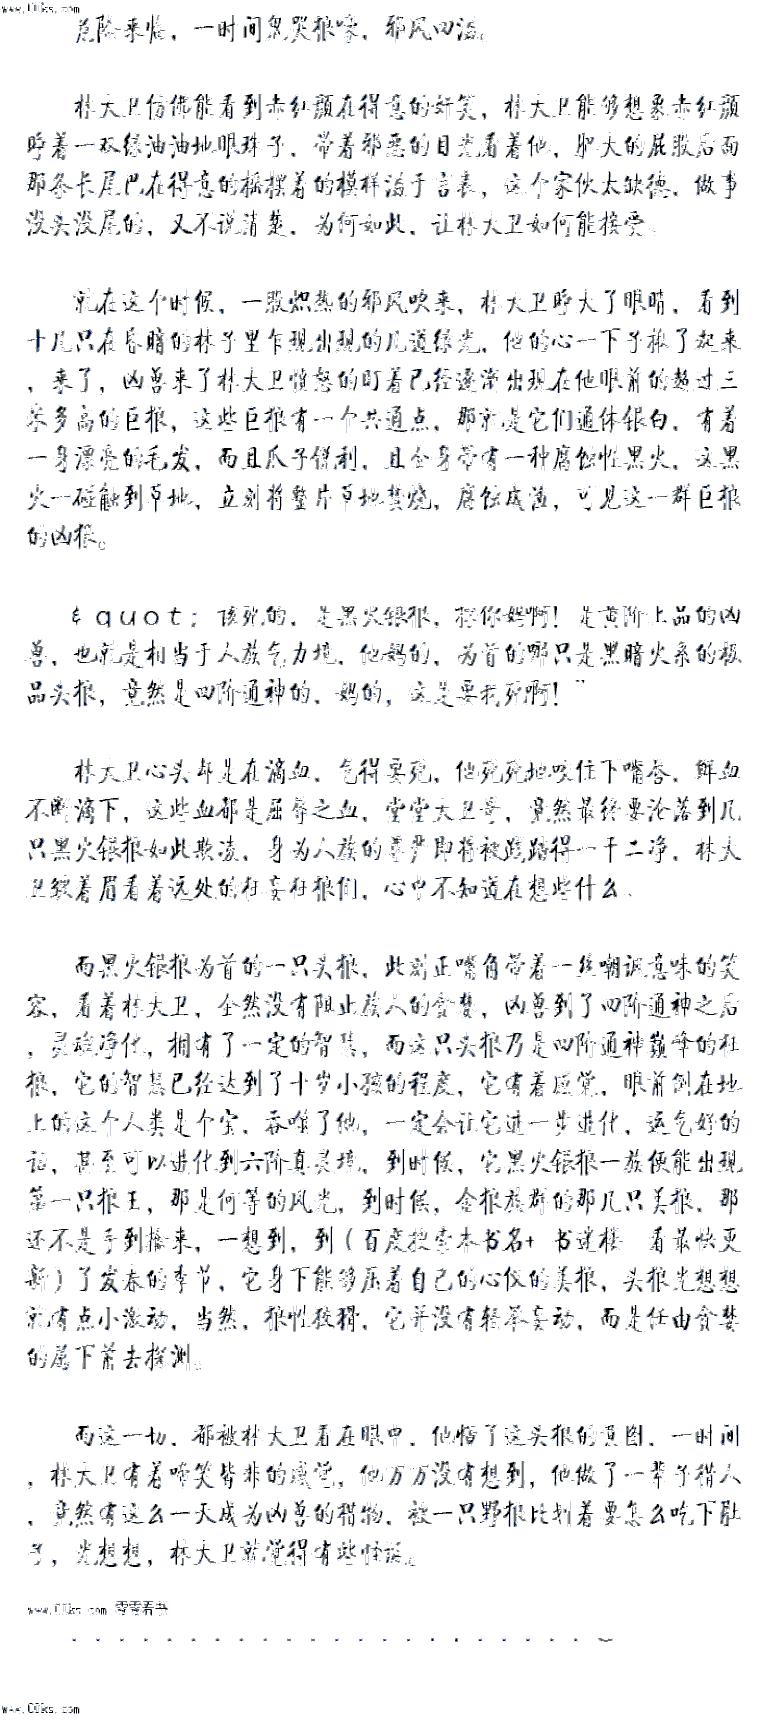 www.00ks.com
危险来临，一时间鬼哭狼嚎，邪风四溢。
林大卫仿佛能看到赤红颜在得意的奸笑，林大卫能够想象赤红颜
睁着一双绿油油地眼珠子，带着邪恶的目光看着他，肥大的屁股后面
那条长尾巴在得意的摇摆着的模样溢于言表，这个家伙太缺德，做事
没头没尾的，又不说清楚，为何如此，让林大卫如何能接受。
就在这个时候，一股炽热的邪风吹来，林大卫睁大了眼睛，看到
十几只在昏暗的林子里乍现出现的几道绿光，他的心一下子揪了起来
，来了，凶兽来了林大卫愤怒的盯着已经逐渐出现在他眼前的超过三
米多高的巨狼，这些巨狼有一个共通点，那就是它们通体银白，有着
一身漂亮的毛发，而且爪子锋利，且全身带有一种腐蚀性黑火，这黑
火一碰触到草地，立刻将整片草地焚烧，腐蚀成渣，可见这一群巨狼
的凶狠。
&quot;该死的，是黑火银狼，探你妈啊！是黄阶上品的凶
兽，也就是相当于人族气力境，他妈的，为首的哪只是黑暗火系的极
品头狼，竟然是四阶通神的，妈的，这是要我死啊！”
林大卫心头却是在滴血，气得要死，他死死地咬住下嘴唇，鲜血
不断滴下，这些血都是屈辱之血，堂堂大卫哥，竟然最终要沦落到几
只黑火银狼如此欺凌，身为人族的尊严即将被践踏得一干二净，林大
卫皱着眉看着远处的狂妄狂狼们，心中不知道在想些什么。
而黑火银狼为首的一只头狼，此刻正嘴角带着一丝嘲讽意味的笑
容，看着林大卫，全然没有阻止族人的贪婪，凶兽到了四阶通神之后
，灵魂净化，拥有了一定的智慧，而这只头狼乃是四阶通神巅峰的狂
狼，它的智慧已经达到了十岁小孩的程度，它有着感觉，眼前倒在地
上的这个人类是个宝，吞噬了他，一定会让它进一步进化，运气好的
话，甚至可以进化到六阶真灵境，到时候，它黑火银狼一族便能出现
第一只狼王，那是何等的风光，到时候，金狼族群的那几只美狼，那
还不是手到擒来，一想到，到（百度搜索本书名+ 书迷楼 看最快更
新）了发春的季节，它身下能够压着自己的心仪的美狼，头狼光想想
就有点小激动，当然，狼性狡猾，它并没有轻举妄动，而是任由贪婪
的属下前去探测。
而这一切，都被林大卫看在眼中，他悟了这头狼的意图，一时间
，林大卫有着啼笑皆非的感觉，他万万没有想到，他做了一辈子猎人
，竟然有这么一天成为凶兽的猎物，被一只野狼比划着要怎么吃下肚
子，光想想，林大卫就觉得有些怪诞。
www.00ks.com 零零看书
www.00ks.com